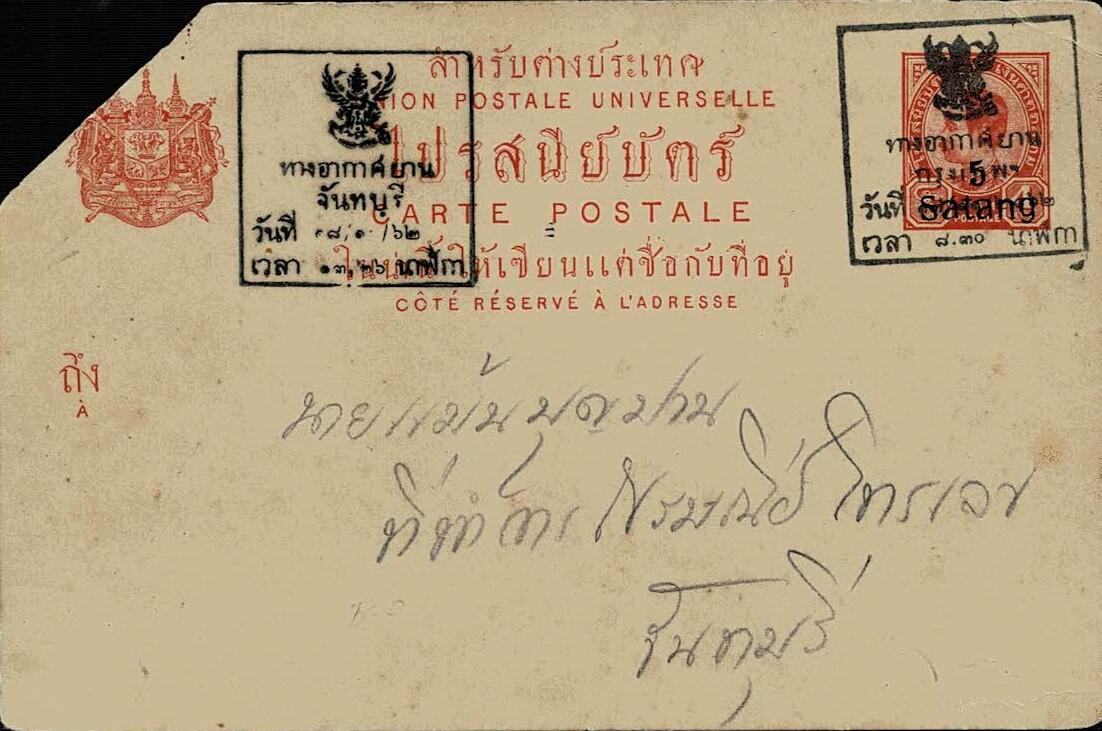 สำหรับต่างประเทศ
UNION POSTALE UNIVERSELLE
ไปรสนียบัตร์
CARTE POSTALE
ให้เขียนแต่ชื่อกับที่อยู่
CÔTÉ RÉSERVÉ À L'ADRESSE
ทางอากาศยาน
จันทบุรี
วันที่
เวลา ๑๓.๒๖ นาฬิกา
ทางอากาศยาน
5
วันที่ Satang
เวลา ๘.๓๐ นาฬิกา
ถึง
À
นายแม้น บุญปาน
ที่ทำการไปรษณีย์โทรเลข
จันทบุรี